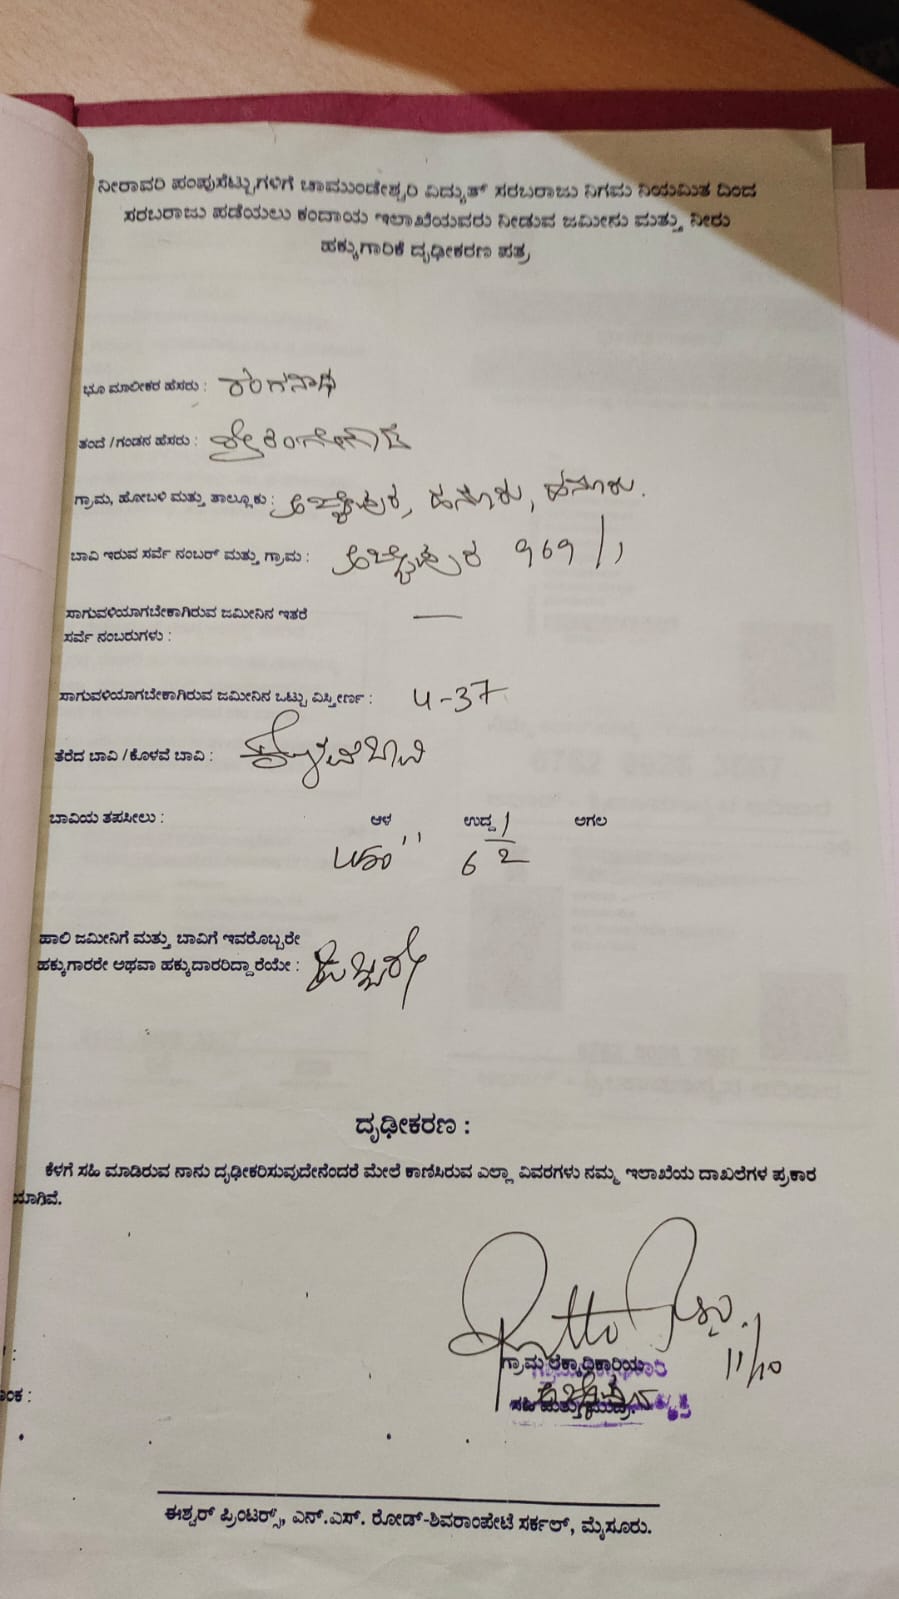 ನೀರಾವರಿ ಪಂಪುಸೆಟ್ಟುಗಳಿಗೆ ಚಾಮುಂಡೇಶ್ವರಿ ವಿದ್ಯುತ್ ಸರಬರಾಜು ನಿಗಮ ನಿಯಮಿತ ದಿಂದ
ಸರಬರಾಜು ಪಡೆಯಲು ಕಂದಾಯ ಇಲಾಖೆಯವರು ನೀಡುವ ಜಮೀನು ಮತ್ತು ನೀರು
ಹಕ್ಕುಗಾರಿಕೆ ದೃಢೀಕರಣ ಪತ್ರ
ಭೂ ಮಾಲೀಕರ ಹೆಸರು : ರಂಗನಾಥ
ತಂದೆ /ಗಂಡನ ಹೆಸರು :
ಗ್ರಾಮ, ಹೋಬಳಿ ಮತ್ತು ತಾಲ್ಲೂಕು : ಹನೂರು, ಹನೂರು.
ಬಾವಿ ಇರುವ ಸರ್ವೆ ನಂಬರ್ ಮತ್ತು ಗ್ರಾಮ : 969/1
ಸಾಗುವಳಿಯಾಗಬೇಕಾಗಿರುವ ಜಮೀನಿನ ಇತರೆ —
ಸರ್ವೆ ನಂಬರುಗಳು :
ಸಾಗುವಳಿಯಾಗಬೇಕಾಗಿರುವ ಜಮೀನಿನ ಒಟ್ಟು ವಿಸ್ತೀರ್ಣ : 4-37
ತೆರೆದ ಬಾವಿ /ಕೊಳವೆ ಬಾವಿ : ಕೊಳವೆಬಾವಿ
ಬಾವಿಯ ತಪಸೀಲು : ಆಳ ಉದ್ದ ಅಗಲ
6 1/2
ಹಾಲಿ ಜಮೀನಿಗೆ ಮತ್ತು ಬಾವಿಗೆ ಇವರೊಬ್ಬರೇ
ಹಕ್ಕುಗಾರರೇ ಅಥವಾ ಹಕ್ಕುದಾರರಿದ್ದಾರೆಯೇ : ಒಬ್ಬರೇ
ದೃಢೀಕರಣ :
ಕೆಳಗೆ ಸಹಿ ಮಾಡಿರುವ ನಾನು ದೃಢೀಕರಿಸುವುದೇನೆಂದರೆ ಮೇಲೆ ಕಾಣಿಸಿರುವ ಎಲ್ಲಾ ವಿವರಗಳು ನಮ್ಮ ಇಲಾಖೆಯ ದಾಖಲೆಗಳ ಪ್ರಕಾರ
ಯಾಗಿವೆ.
11/10
ಗ್ರಾಮ ಲೆಕ್ಕಾಧಿಕಾರಿಯ
ಸಹಿ ಮತ್ತು ಮುದ್ರೆ
ಈಶ್ವರ್ ಪ್ರಿಂಟರ್ಸ್, ಎನ್.ಎಸ್. ರೋಡ್-ಶಿವರಾಂಪೇಟೆ ಸರ್ಕಲ್, ಮೈಸೂರು.